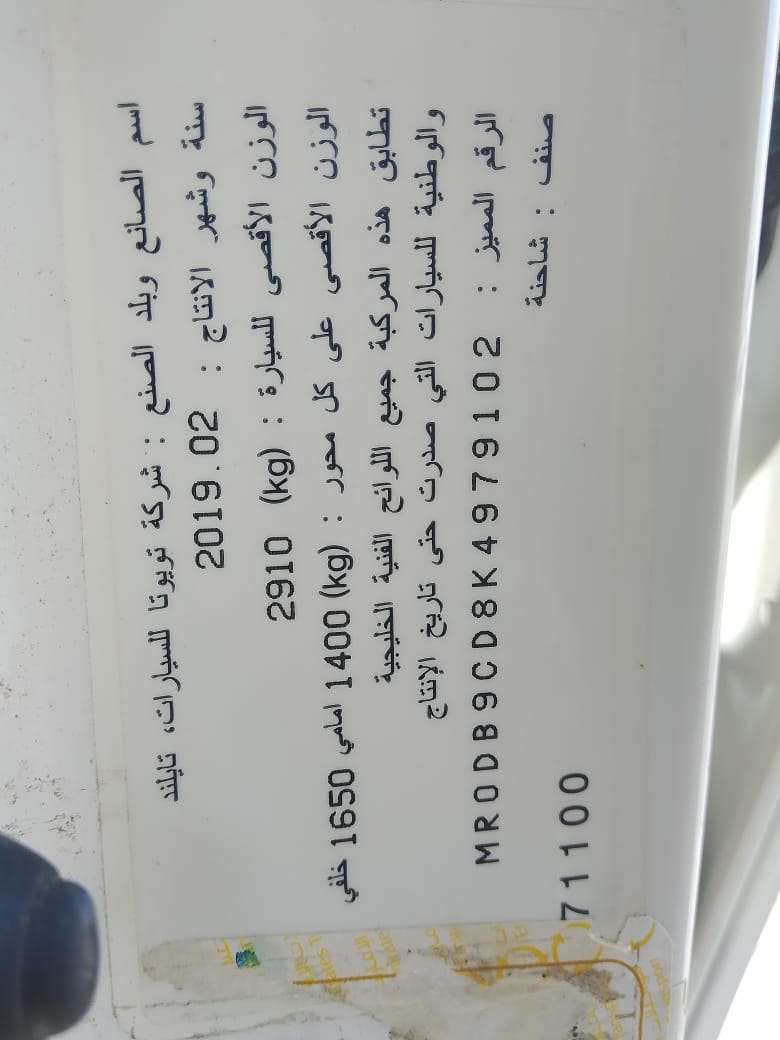 اسم الصانع وبلد الصنع : شركة تويوتا للسيارات، تايلند
سنة وشهر الانتاج : 2019.02
الوزن الأقصى للسيارة : (kg) 2910
الوزن الأقصى على كل محور : (kg) 1400 امامي 1650 خلفي
تطابق هذه المركبة جميع اللوائح الفنية الخليجية
والوطنية للسيارات التي صدرت حتى تاريخ الإنتاج
الرقم المميز : MR0DB9CD8K4979102
صنف : شاحنة
71100